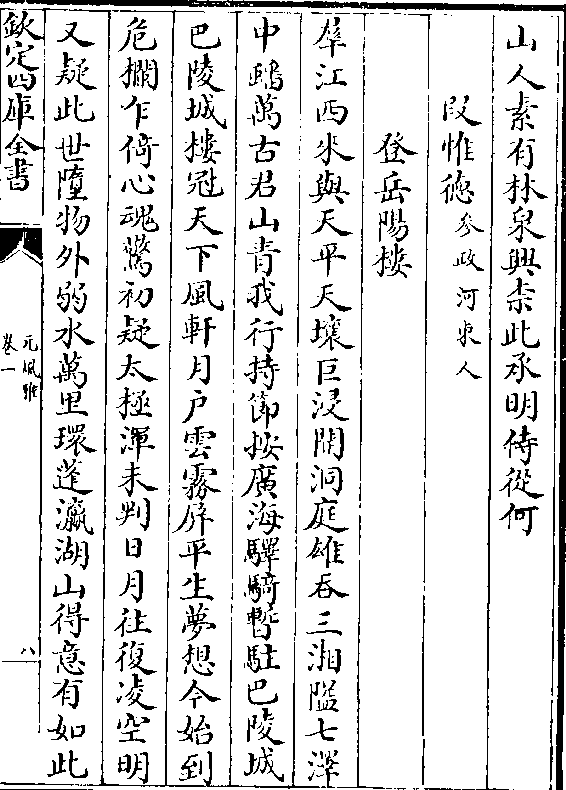 山人素有林泉興柰此承明侍從何
段惟德叅政河東人
登岳陽樓
羣江西來與天平天壤巨浸開洞庭雄吞三湘隘七澤
中𨿅萬古君山青我行持節按廣海驛騎暫駐巴陵城
巴陵城樓冠天下風軒月户雲霧屏平生夢想今始到
危欄乍倚心魂驚初疑太極渾未判日月往復凌空明
又疑此世墮物外弱水萬里環蓬瀛湖山得意有如此
欽定四庫全書
元風雅
卷一
八